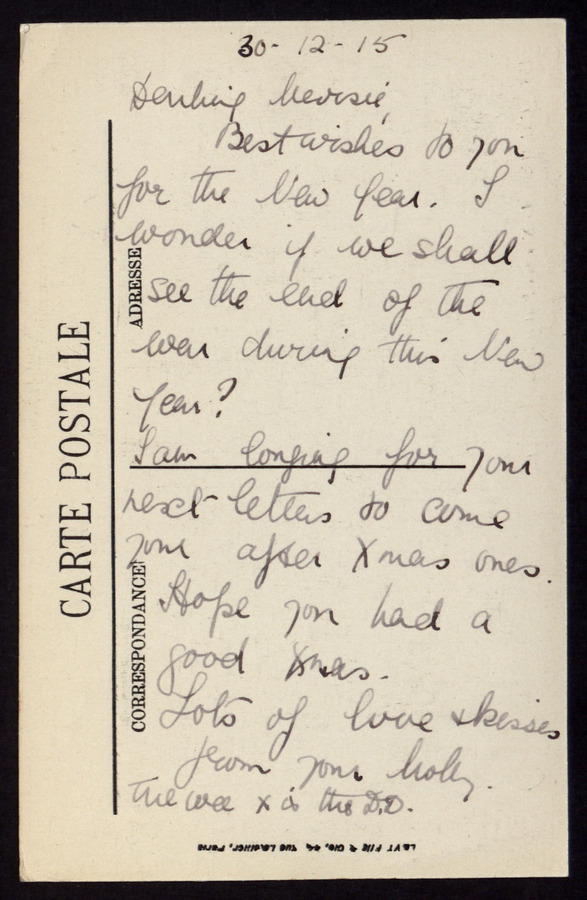 30-12-15
Darling
Best wishes to you
for the New Year. I
wonder if we shall
see the end of the
war during this New
Year?
I am longing for your
next letters to come
your after Xmas ones.
Hope you had a
good Xmas.
Lots of love & kisses
from your
The wee x is the D.D.
CARTE POSTALE
ADRESSE
CORRESPONDANCE